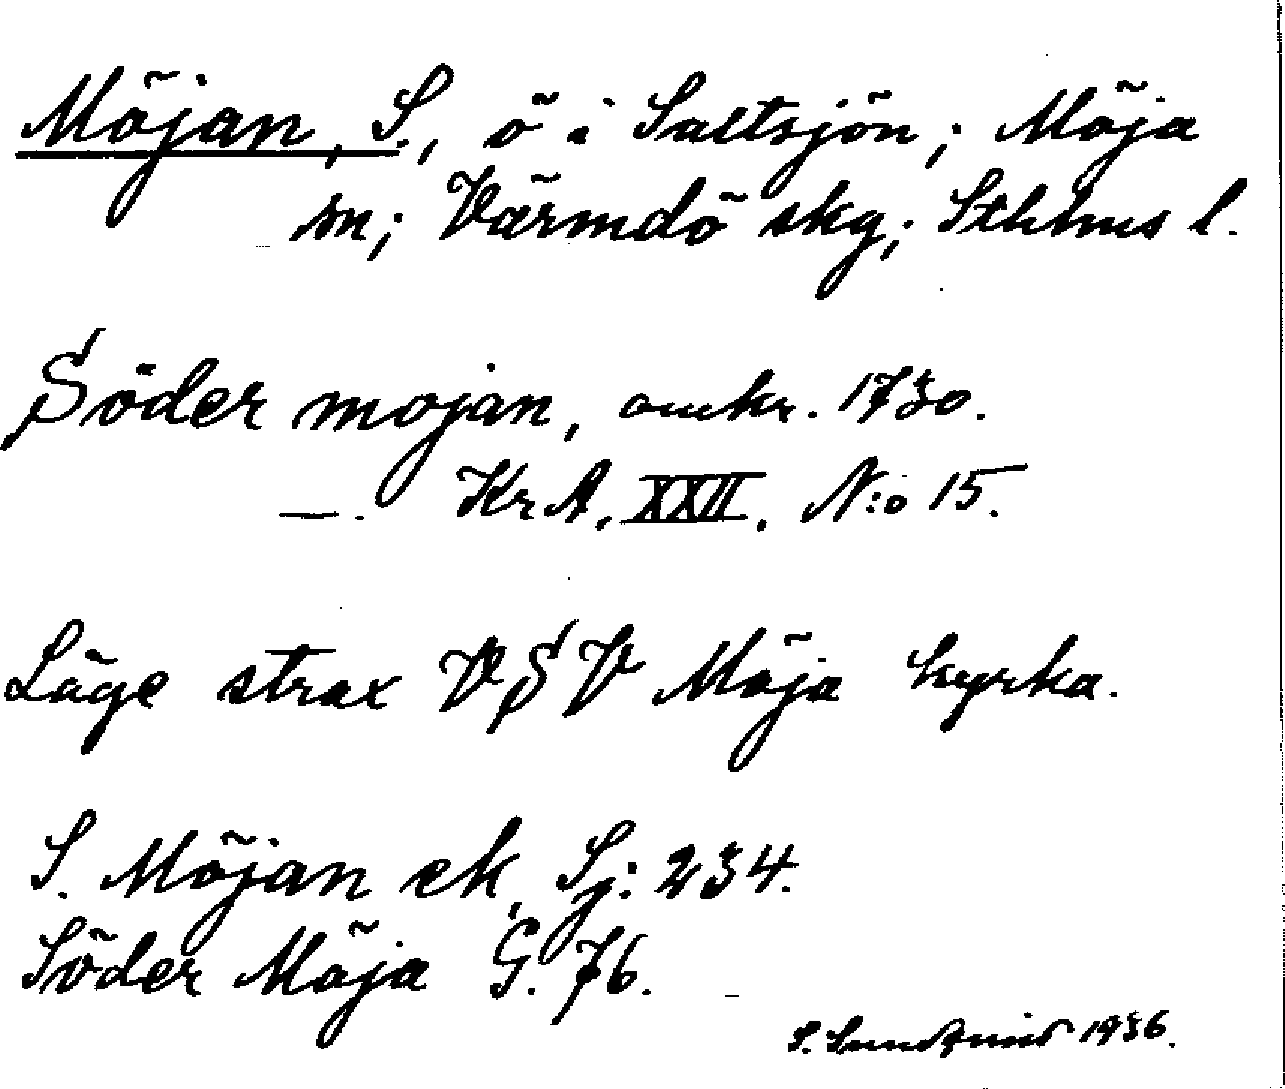 Möjan, S., ö i Saltsjön; Möja
sn; Värmdö skg; Sthlms l.
Söder mojan, omkr. 1730.
—. KrA, XXII, N:o 15.
Läge strax VSV Möja kyrka.
S. Möjan ek, Sj: 234.
Söder Möja G. 76.
S. Sundqvist 1936.